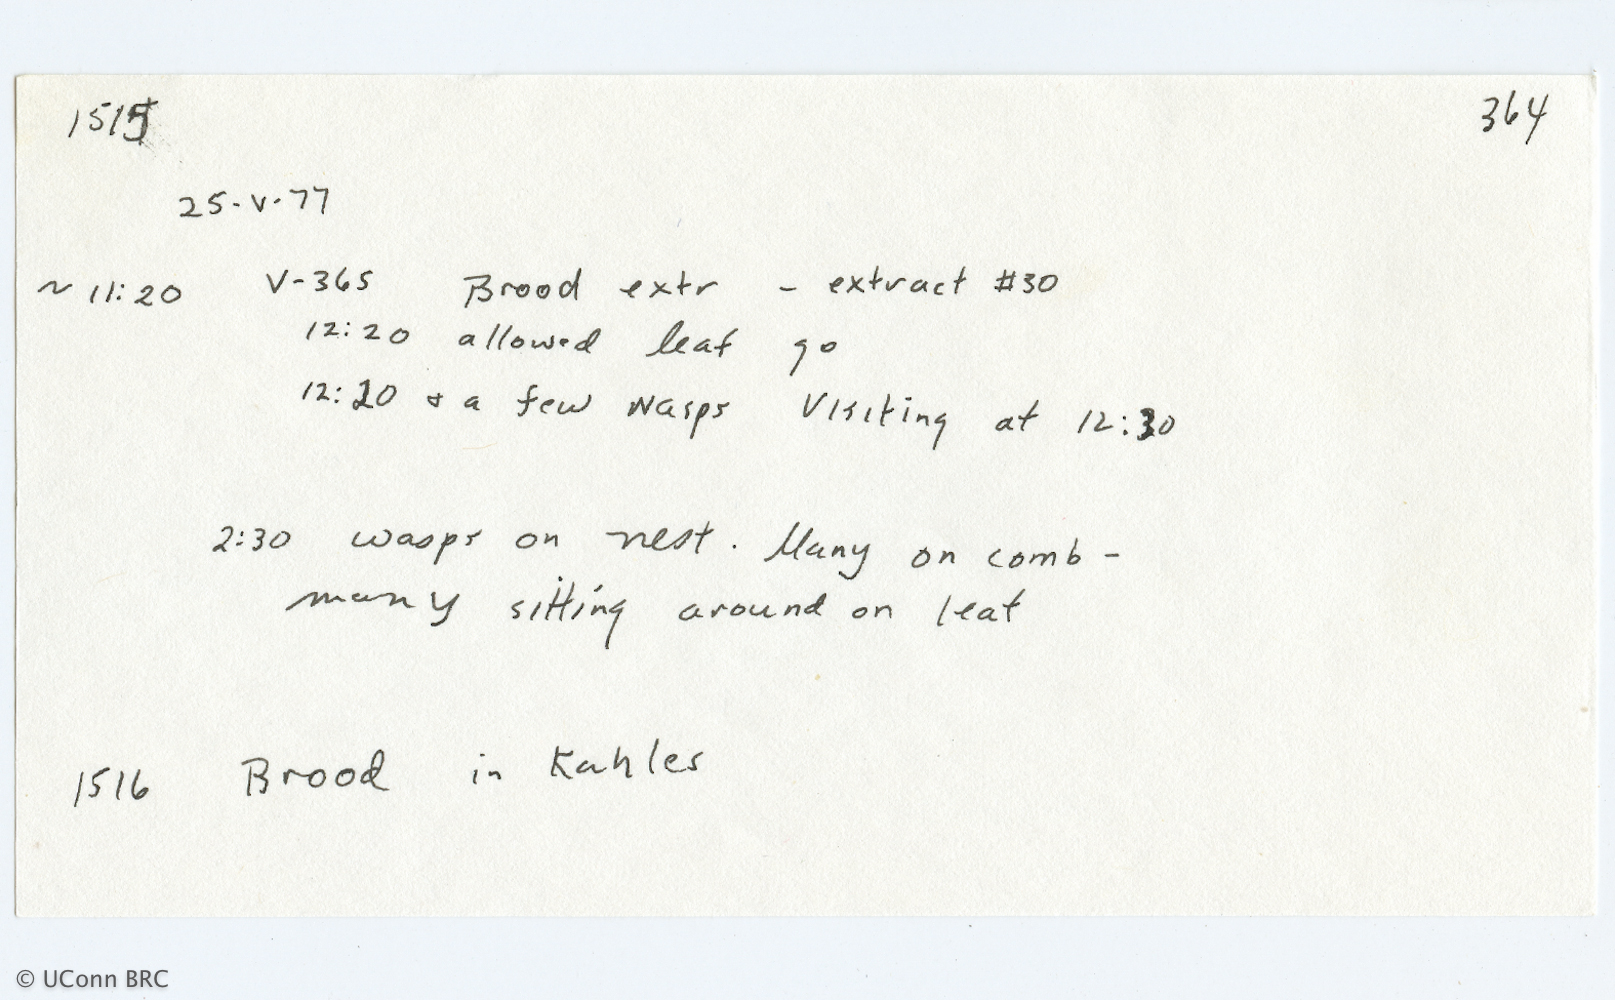 1515 364
25-V-77
~ 11:20 V-365 Brood extr - extract #30
12:20 allowed leaf go
12:20 & a few wasps visiting at 12:30
2:30 wasps on nest. Many on comb -
many sitting around on leaf
1516 Brood in Kahles
© UConn BRC